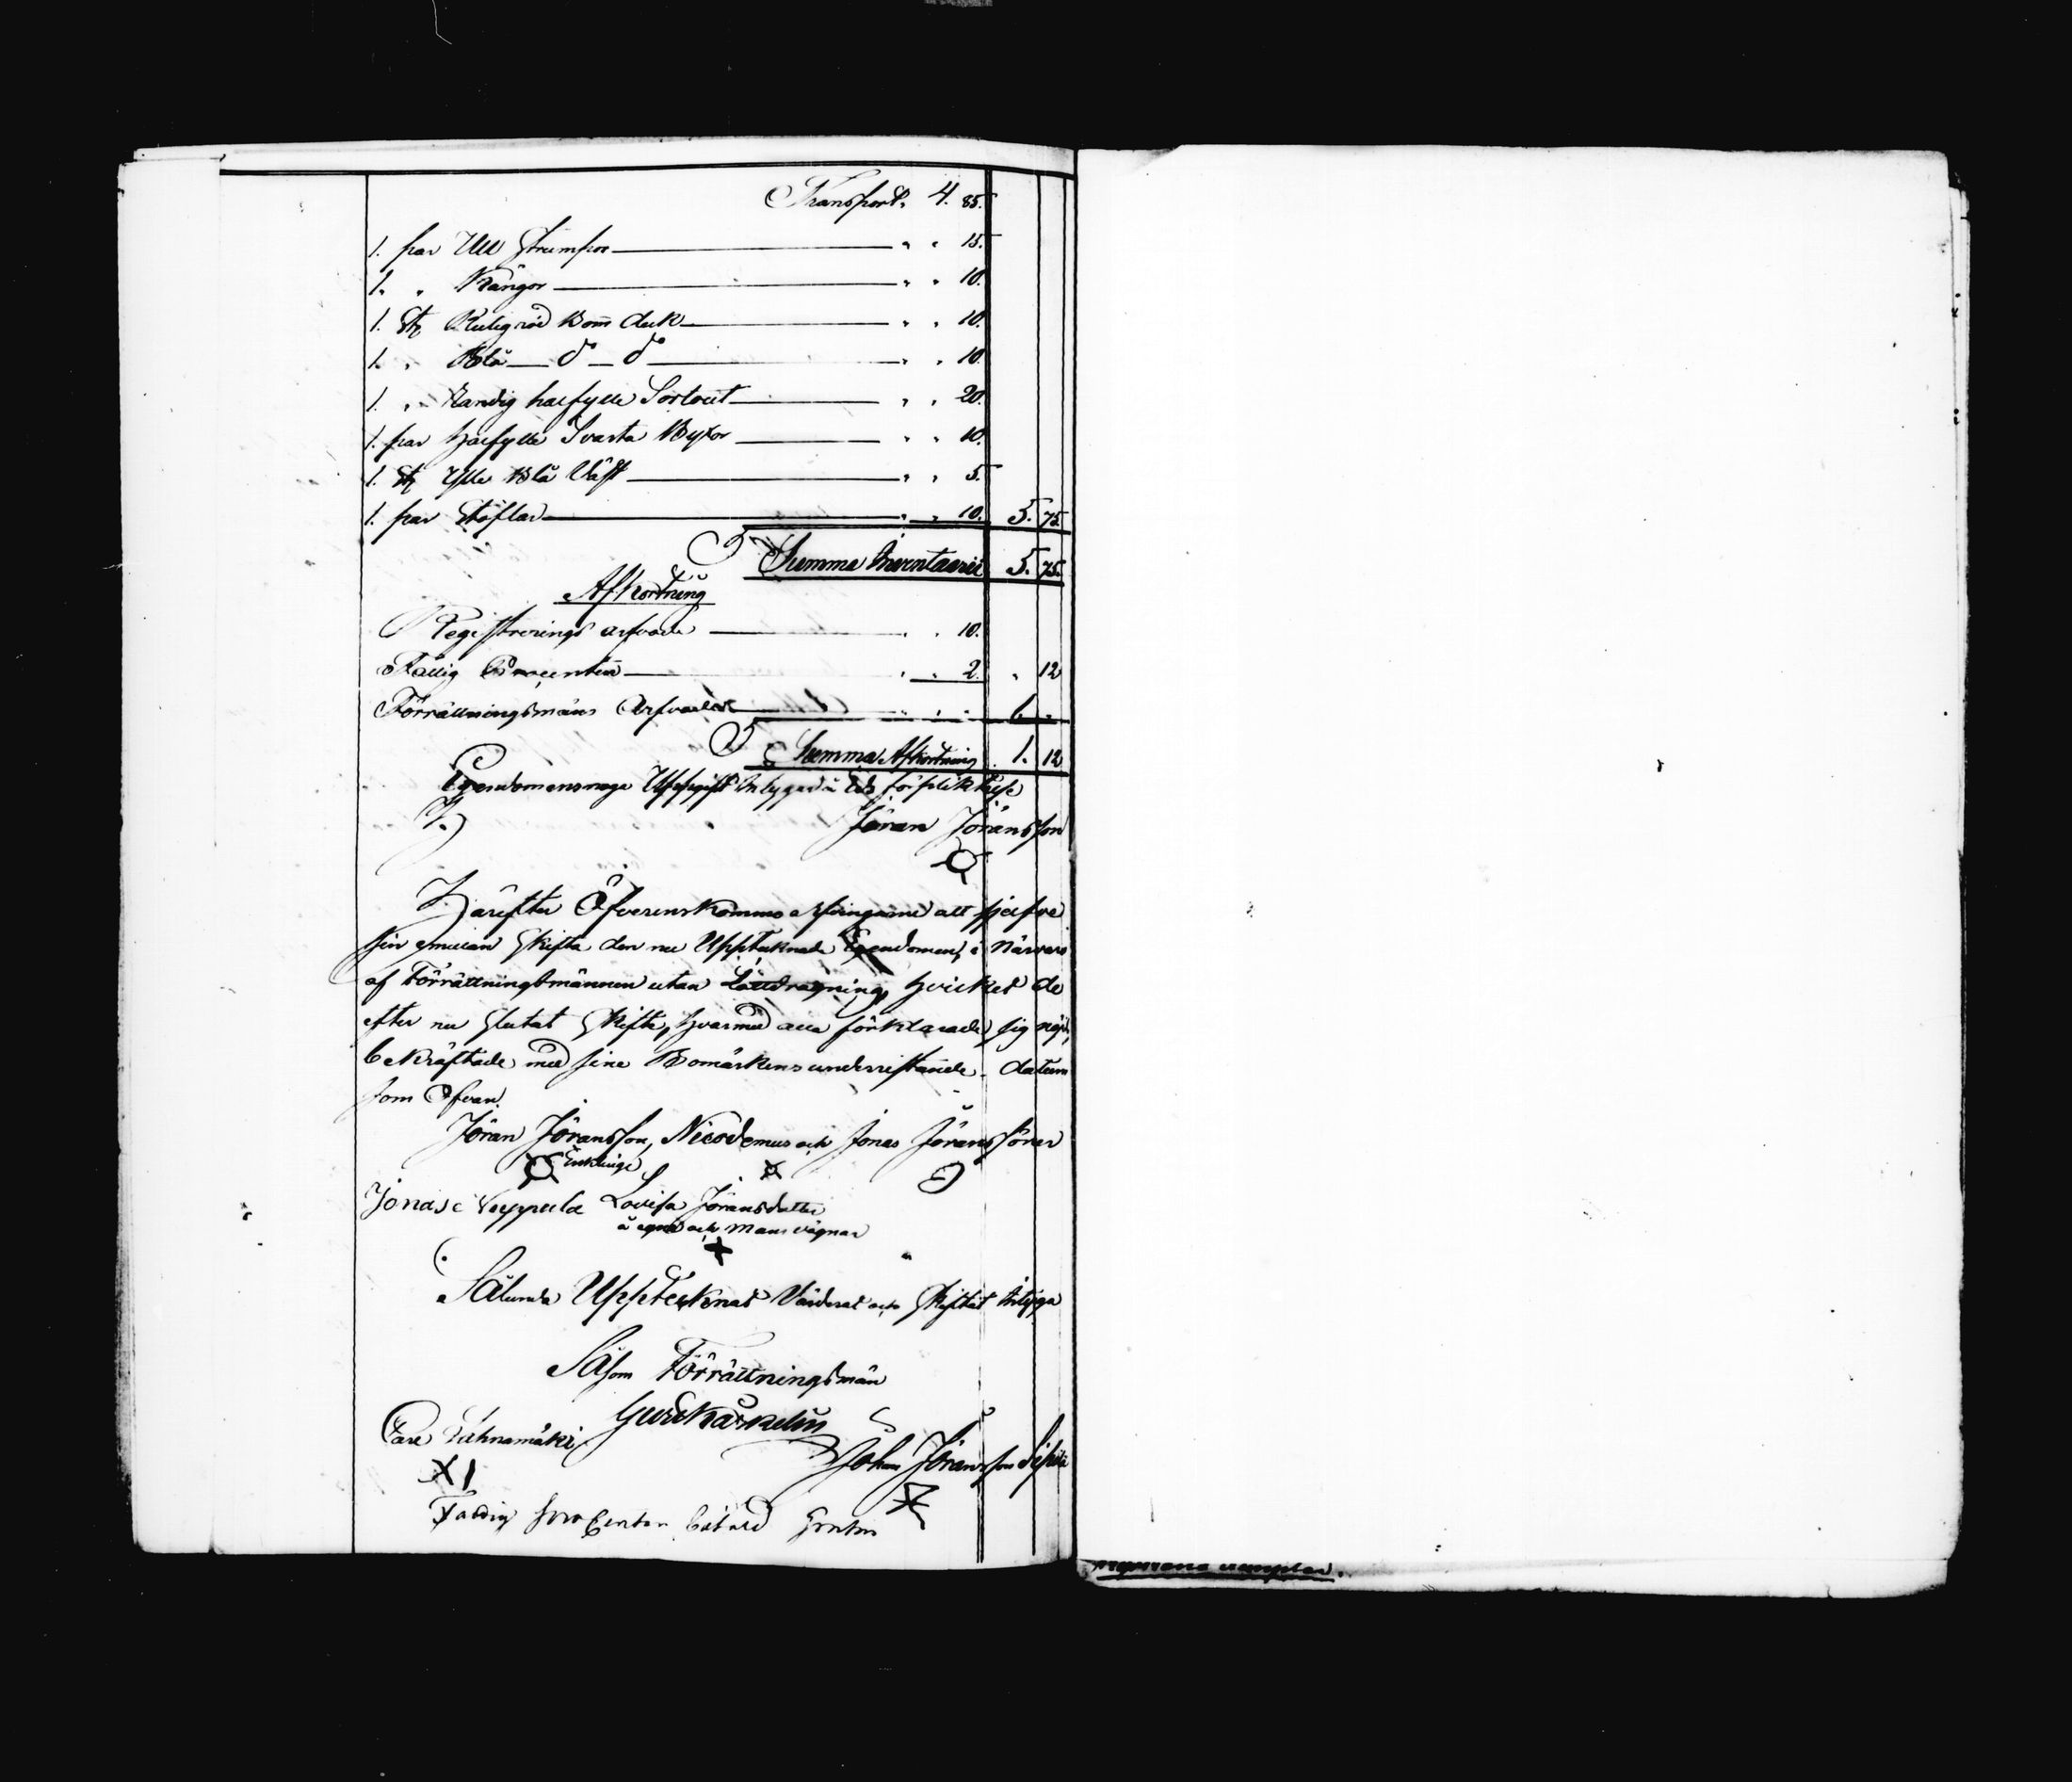 Transport. 4. 85.
1. par Ull Strumpor — " " 15.
1. " Kängor — " " 10.
1. St Rutig röd Bom duk — " " 10.
1. " Blå — do — do — " " 10.
1. " Randig halfylle Sortout — " " 20.
1. par halfylle Svarta Byxor — " " 10.
1. St Ylle Blå Väst — " " 5.
1. par Stöflar — " " 10. 5. 75.
Summa Inventarii 5. 75.
Afkortning
Registrerings arfvode — " " 10.
Fattig Procenten — " " 2. " 12
Förrättningsmäns Arfvodet — " " " 1. "
Summa Afkortning 1. 12
Egendomens noga Uppgift intygas å Eds förplicktelse
Jöran Jöransson
Härefter Öfverenskommo arfvingarne att sjelfve
sin emellan Skifta den nu Upptecknade Egendomen, i närvaro
af Förrättningsmännen utan Lottdragning, hvilket de
efter nu slutat Skifte, hvarmed alla förklarade sig nöjda,
bekräftade med sine Bomärkens underristande. datum
som Ofvan.
Jöran Jöransson, Nicodemus och Jonas Jöranssöner
Enklinge
Jonas Seppälä Lovisa Jöransdotter
å egna och Mans vägnar
Sålunda Upptecknat Värderat och Skiftat intyga
Såsom Förrättningsmän
Carl
Johan Jöransson Sipilä
Fattig procenten betald